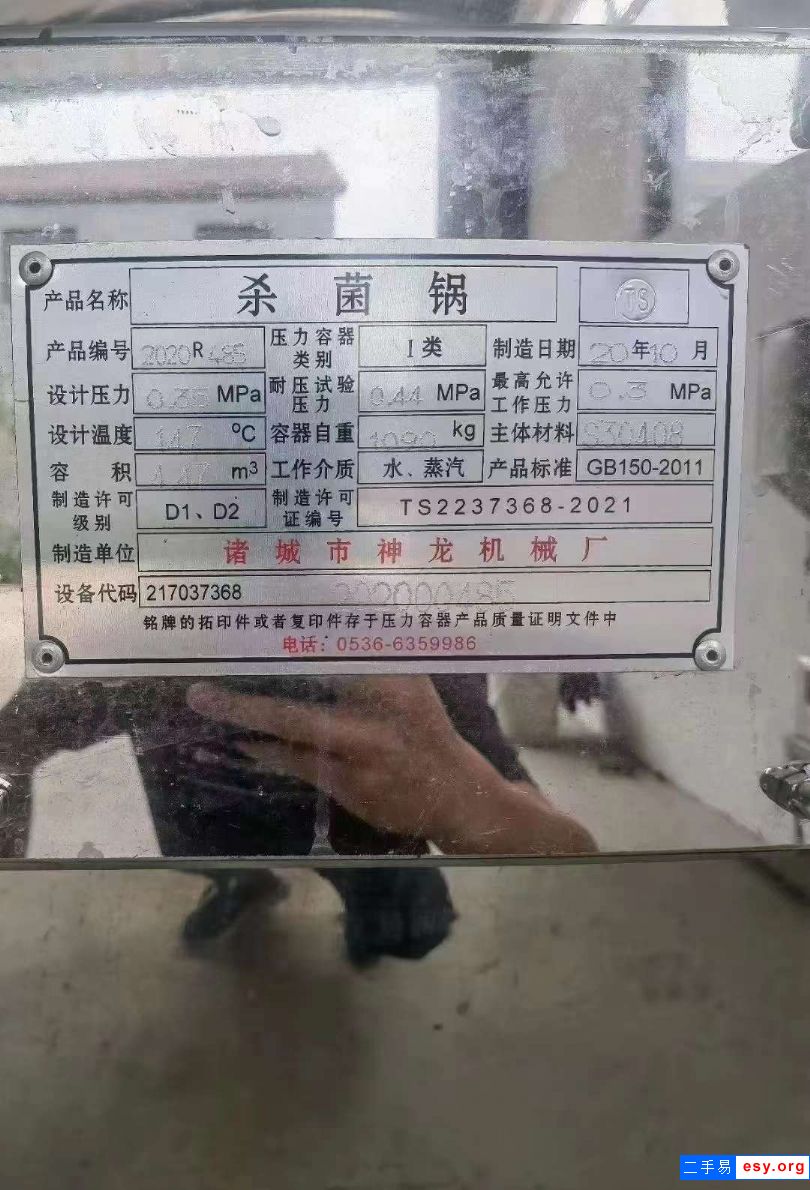 产品名称 杀菌锅 TS
产品编号 2020R485 压力容器类别 I类 制造日期 20年10月
设计压力 0.35 MPa 耐压试验压力 0.44 MPa 最高允许工作压力 0.3 MPa
设计温度 147 ℃ 容器自重 1090 kg 主体材料 S30408
容积 4.47 m³ 工作介质 水、蒸汽 产品标准 GB150-2011
制造许可级别 D1、D2 制造许可证编号 TS2237368-2021
制造单位 诸城市神龙机械厂
设备代码 217037368 202000485
铭牌的拓印件或者复印件存于压力容器产品质量证明文件中
电话：0536-6359986
二手易 esy.org